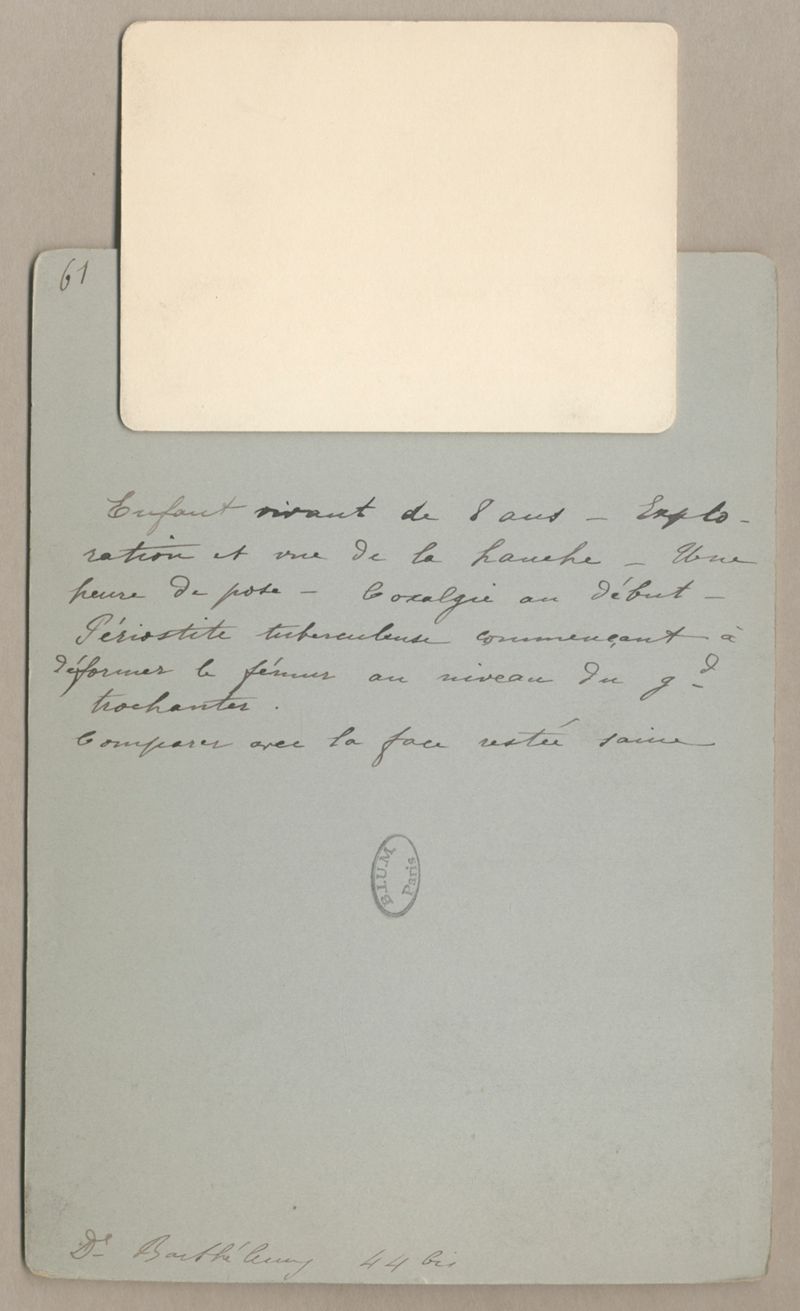 61
Enfant vivant de 8 ans - Explo-
ration et vue de la hanche - Une
heure de pose - Coxalgie au début -
Périostite tuberculeuse commençant à
déformer le fémur au niveau du gd
trochanter.
Comparer avec la face restée saine
B.I.U.M
Paris
Dr Barthélemy 44 bis